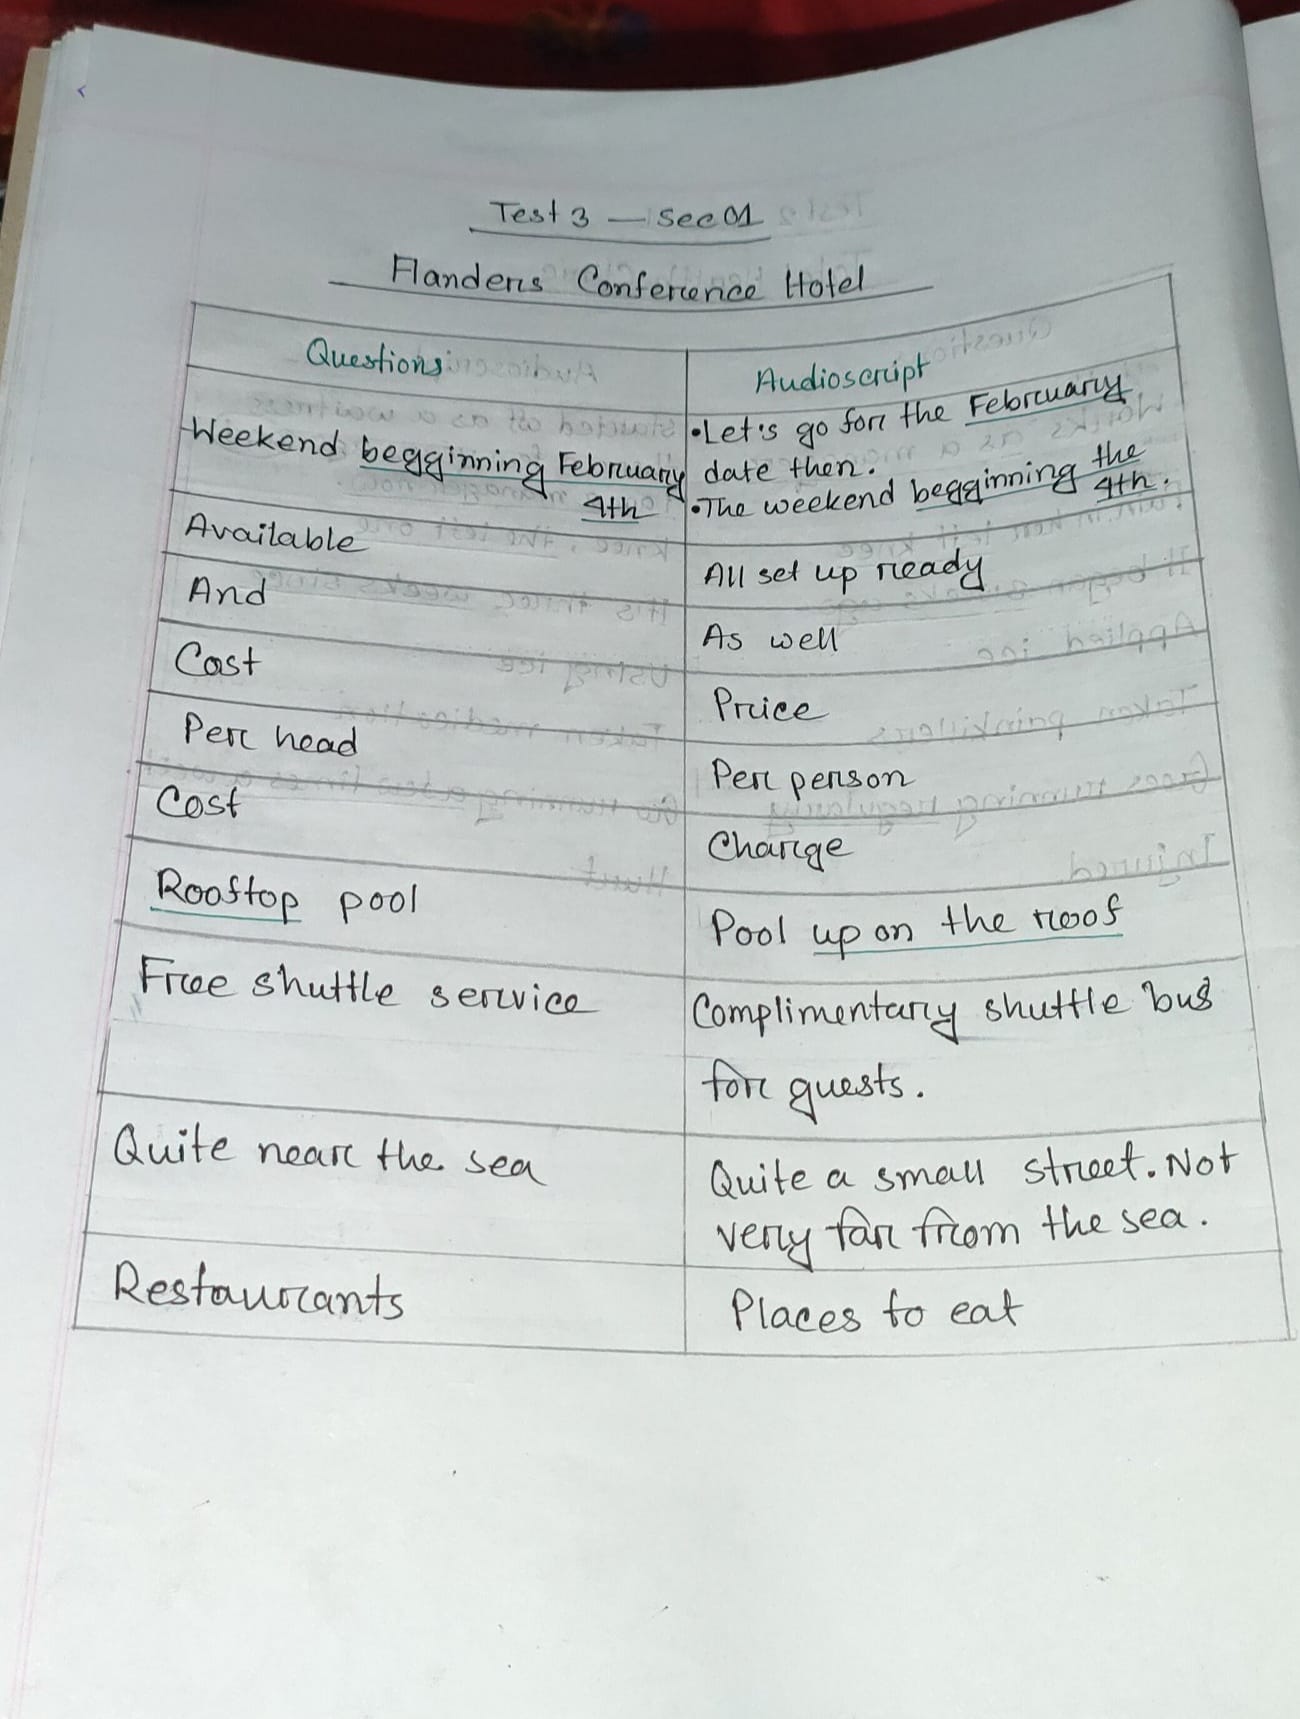 Test 3 — Sec 01
Flanders Conference Hotel
Questions
Audioscript
Weekend begginning February
4th
•Let's go for the February
date then.
•The weekend begginning the
4th.
Available
All set up ready
And
As well
Cost
Price
Per head
Per person
Cost
Charge
Rooftop pool
Pool up on the roof
Free shuttle service
Complimentary shuttle bus
for guests.
Quite near the sea
Quite a small street. Not
very far from the sea.
Restaurants
Places to eat